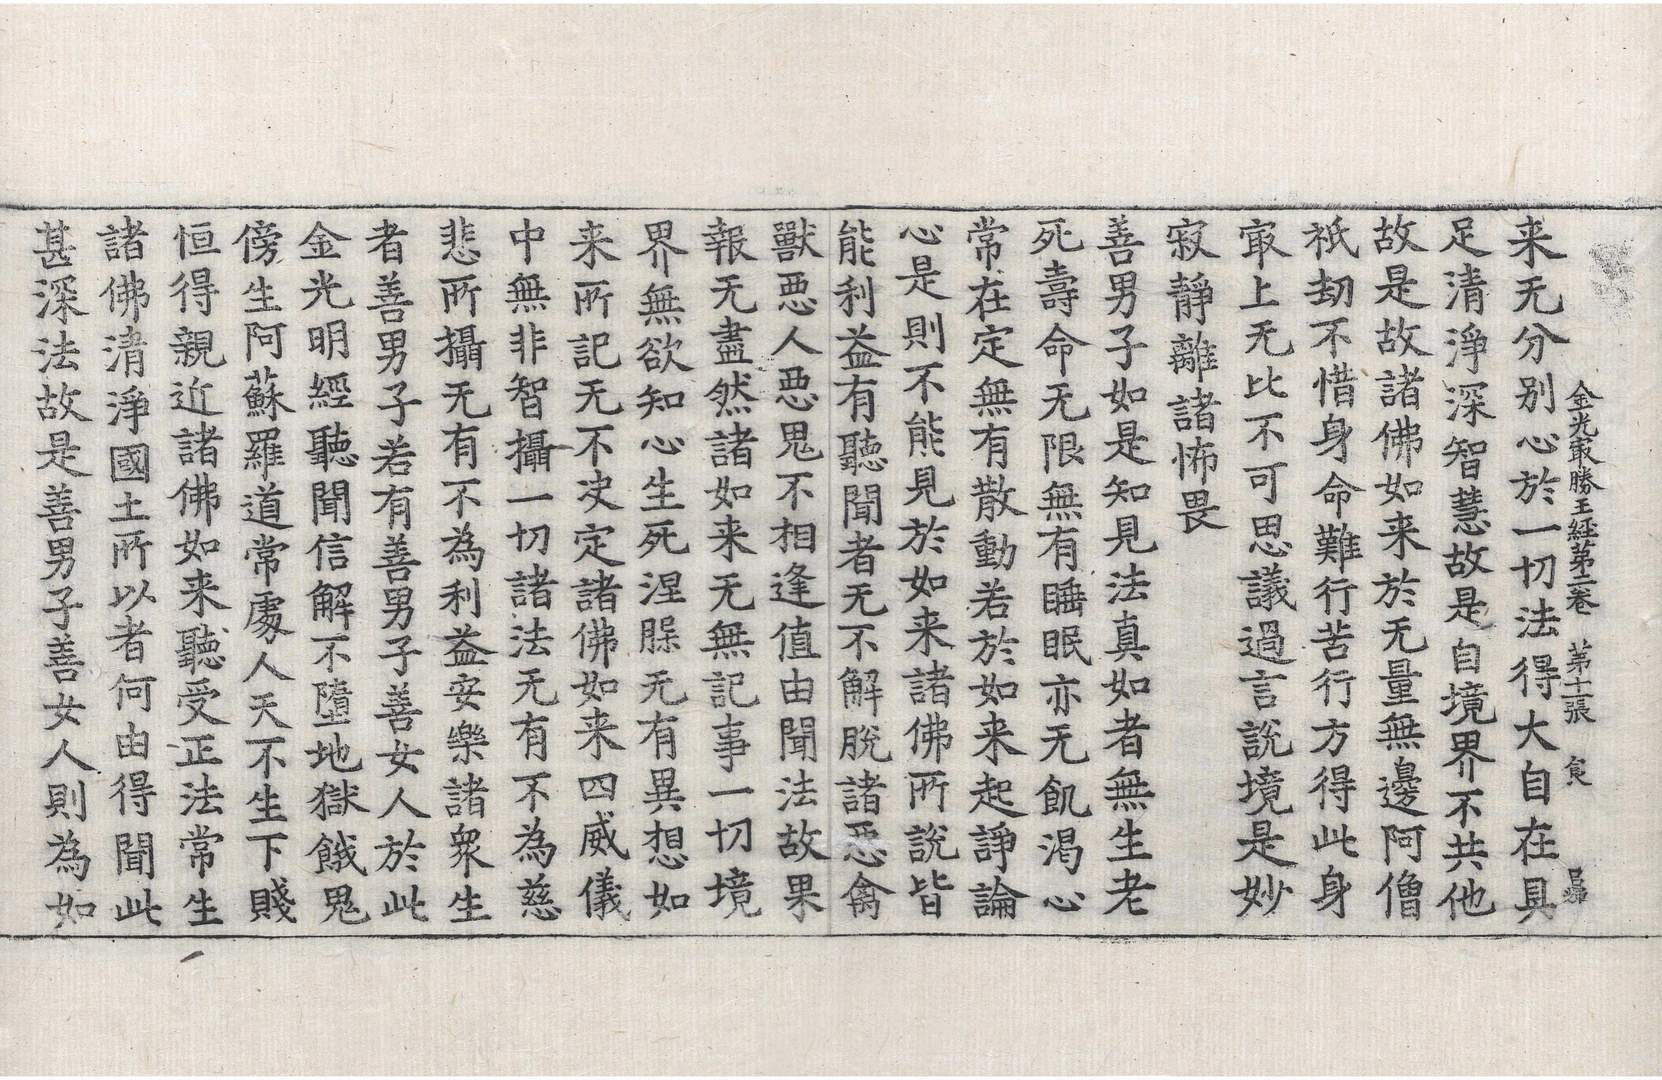 金光㝡勝王經第二卷 第十張 食
来无分别心於一切法得大自在具
足清淨深智慧故是自境界不共他
故是故諸佛如来於无量無邊阿僧
祇劫不惜身命難行苦行方得此身
㝡上无比不可思議過言說境是妙
寂靜離諸怖畏
善男子如是知見法真如者無生老
死壽命无限無有睡眠亦无飢渴心
常在定無有散動若於如来起諍論
心是則不能見於如来諸佛所說皆
能利益有聽聞者无不解脫諸惡禽
獸惡人惡鬼不相逢值由聞法故果
報无盡然諸如来无無記事一切境
界無欲知心生死涅槃无有異想如
来所記无不决定諸佛如来四威儀
中無非智攝一切諸法无有不為慈
悲所攝无有不為利益安樂諸衆生
者善男子若有善男子善女人於此
金光明經聽聞信解不墮地獄餓鬼
傍生阿蘇羅道常處人天不生下賤
恒得親近諸佛如来聽受正法常生
諸佛清淨國土所以者何由得聞此
甚深法故是善男子善女人則為如